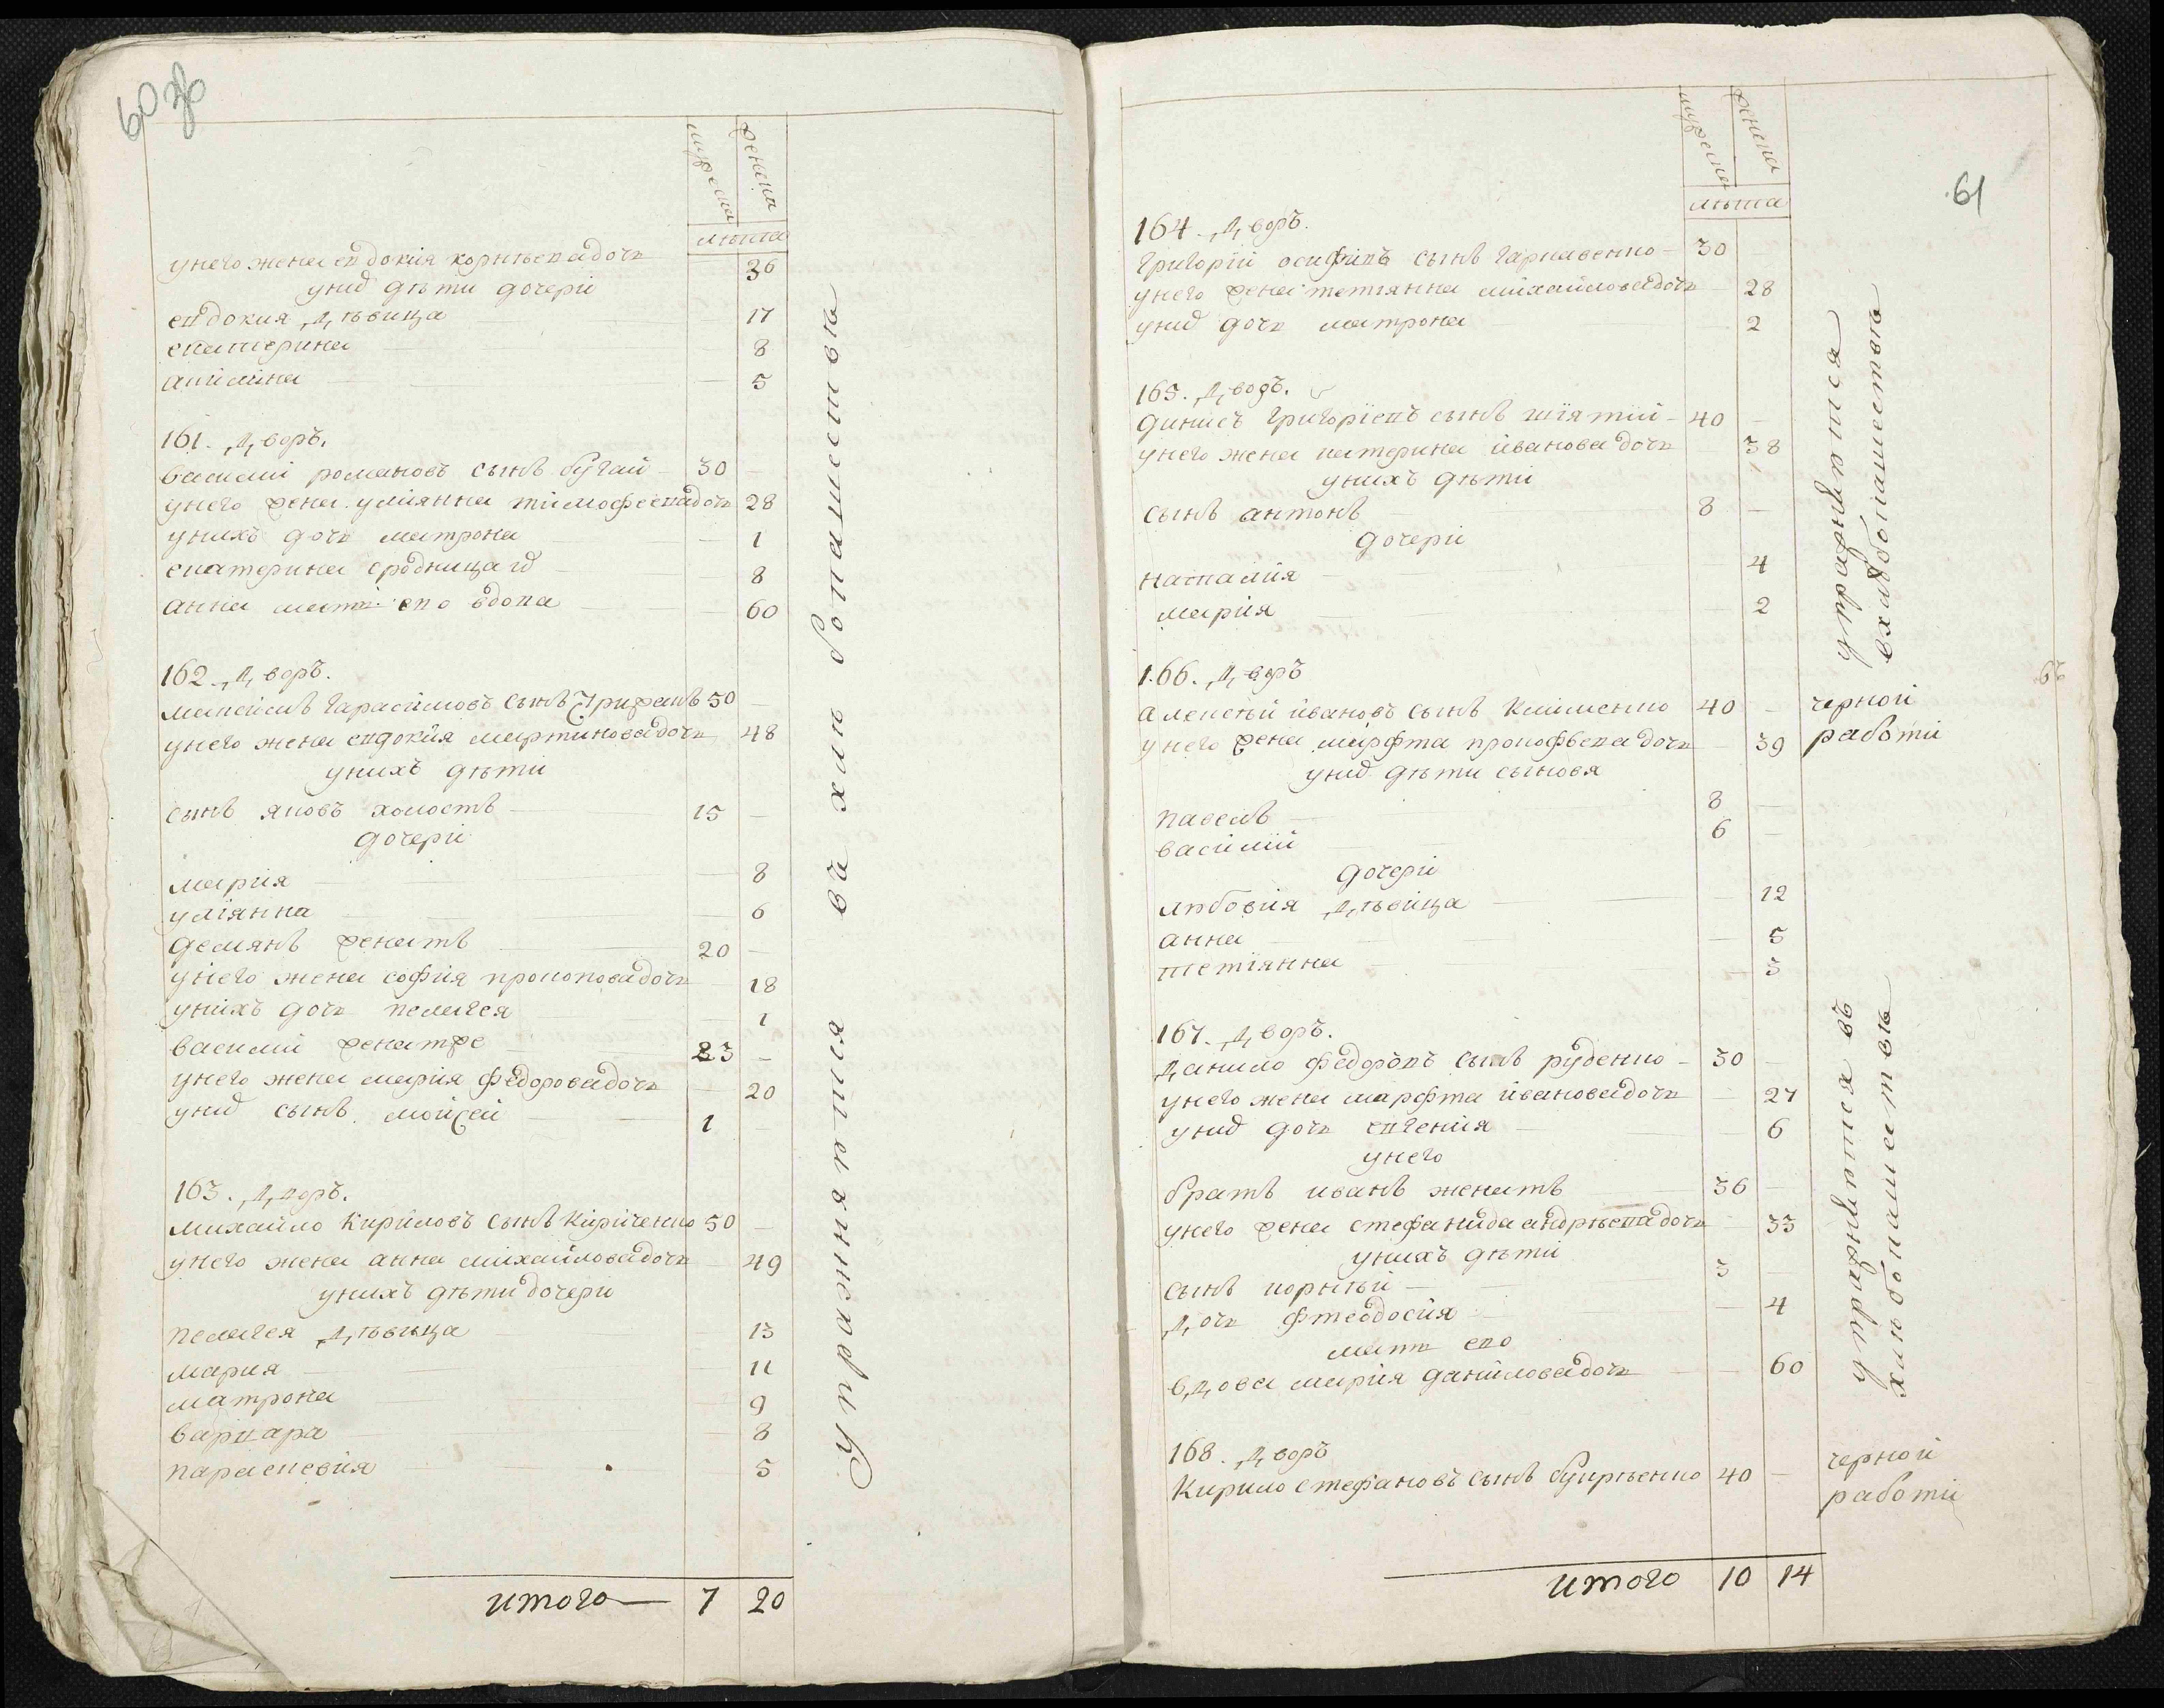 60 зв
мужеска женска
лѣта
унего жена евдокия корнѣева дочь 36
уних дѣти дочери
евдокия дѣвица 17
екатерина 8
акилина 5
161. дворъ.
василий романовъ сынъ бугай 30
унего жена улиянна тимофеева дочь 28
унихъ дочь матрона 1
екатерина сродница их 8
анна мати ево вдова 60
162. дворъ.
максимъ гарасимовъ сынъ 50
унего жена евдокия мартинова дочь 48
унихъ дѣти
сынъ яковъ холостъ 15
дочери
мария 8
улїянна 6
демянъ женатъ 20
унего жена софия прокопова дочь 18
унихъ дочь пелагея 1
василий женатже 23
унего жена мария федорова дочь 20
уних сынъ мойсей 1
163. дворъ.
михайло кирйловъ сынъ Кириченко 50
унего жена анна михайлова дочь 49
унихъ дѣти дочери
пелагея дѣвица 13
мария 11
матрона 9
варвара 8
параскевия 5
Упражняются въ хлѣбопашествѣ
итого 7 20
61
мужеска женска
лѣта
164. дворъ.
григорий осифивъ сынъ гаркавенко 30
унего жена тетянна михайлова дочь 28
уних дочь матрона 2
165. дворъ.
динисъ григорїевъ сынъ шїятий 40
унего жена катерина иванова дочь 38
унихъ дѣти
сынъ антонъ 8
дочери
наталия 4
мария 2
упражняются
вхлѣбопашествѣ
166. дворъ
алексѣй ивановъ сынъ Клименко 40
унего жена марфта прокофьева дочь 39
уних дѣти сыновя
павелъ 8
василий 6
дочери
любовия дѣвица 12
анна 5
тетїянна 3
черной
работи
167. дворъ.
данило федоровъ сынъ руденко 30
унего жена марфта иванова дочь 27
уних дочь евгения 6
унего
братъ иванъ женатъ 36
унего жена стефанида андрѣева дочь 33
унихъ дѣти
сынъ корнѣй 3
дочь фтеодосия 4
мать ево
вдова мария данилова дочь 60
упражняются въ
хлѣбопашествѣ
168. дворъ
Кирило стефановъ сынъ букрѣенко 40
черной
работи
итого 10 14